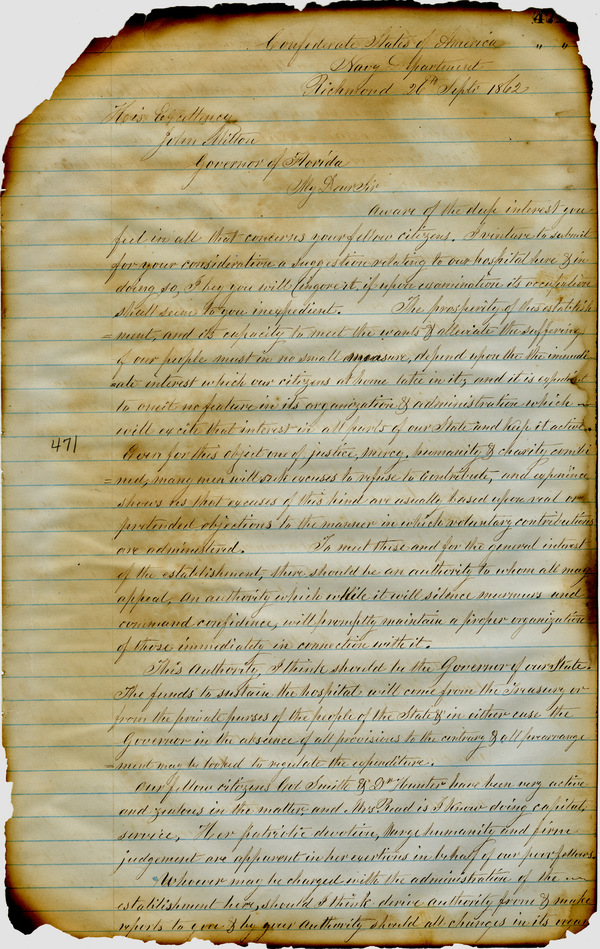 47
Confederate States of America " "
Navy Department
Richmond 26th Septr 1862
His Excellency
John Milton
Governor of Florida
My Dear Sir
Aware of the deep interest you
feel in all that concerns your fellow citizens. I venture to submit
for your consideration a suggestion relating to our hospital here & in
doing so, I beg you will ignore it if upon examination its
shall seem to you inexpedient. The prosperity of this establish
=ment, and its capacity to meet the wants & alleviate the suffering
of our people must in no small measure, depend upon the the immedi
=ate interest which our citizens at home take in it, and it is expedient
to omit no feature in its organization & administration which
will excite that interest in all parts of our State and keep it active.
471
Even for this object one of justice, mercy, humanity & charity combi
=ned, many men will seek excuses to refuse to contribute, and experience
shows us that excuses of this kind are usually based upon real or
pretended objections to the manner in which voluntary contributions
are administered. To meet these and for the general interest
of the establishment, there should be an authority to whom all may
appeal, an authority which while it will silence murmurs and
command confidence, will promptly maintain a proper organization
of those immediately in connection with it.
This authority, I think should be the Governor of our State.
The funds to sustain the hospital will come from the Treasury or
from the private purses of the people of the State & in either case the
Governor in the absence of all provisions to the contrary & all prearrange
=ment may be looked to regulate the expenditure.
Our fellow citizens Col Smith & Dr Hunter have been very active
and zealous in the matter, and Mrs Read is I know doing capital
service, Her patriotic devotion, large humanity and firm
judgement are apparent in her exertions in behalf of our poor fellows.
Whoever may be charged with the administration of the
establishment here, should I think derive authority from & make
reports to you & by your authority should all changes in its